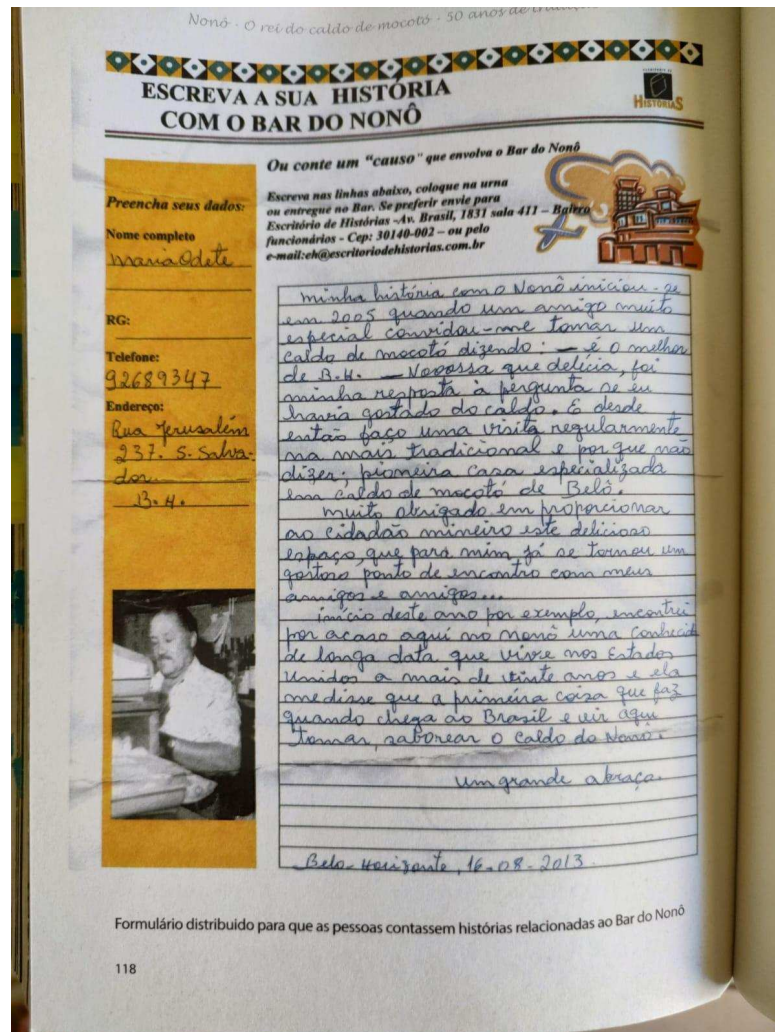 Nonô - O rei do caldo de mocotó - 50 anos de
ESCREVA A SUA HISTÓRIA
COM O BAR DO NONÔ
HISTORIAS
Ou conte um "causo" que envolva o Bar do Nonô
Escreva nas linhas abaixo, coloque na urna
ou entregue no Bar. Se preferir envie para
Escritório de Histórias -Av. Brasil, 1831 sala 411 – Bairro
funcionários - Cep: 30140-002 – ou pelo
e-mail:eh@escritoriodehistorias.com.br
Preencha seus dados:
Nome completo
Maria Odete
RG:
Telefone:
92689347
Endereço:
Rua Jerusalém
237. S. Salva-
dor
B.H.
minha história com o Nonô iniciou-se
em 2005 quando um amigo muito
especial convidou-me tomar um
caldo de mocotó dizendo: – é o melhor
de B.H. – Nooossa que delícia, foi
minha resposta à pergunta se eu
havia gostado do caldo. E desde
então faço uma visita regularmente
na mais tradicional e por que não
dizer; pioneira casa especializada
em caldo de mocotó de Belô.
muito obrigado em proporcionar
ao cidadão mineiro este delicioso
espaço, que para mim já se tornou um
gostoso ponto de encontro com meus
amigos e amigas...
início deste ano por exemplo, encontrei
por acaso aqui no nonô uma conhecid
de longa data que vive nos Estados
Unidos a mais de vinte anos e ela
me disse que a primeira coisa que faz
quando chega ao Brasil e vir aqui
tomar, saborear o caldo do Nonô.
um grande abraço.
Belo-Horizonte, 16-08-2013.
Formulário distribuido para que as pessoas contassem histórias relacionadas ao Bar do Nonô
118